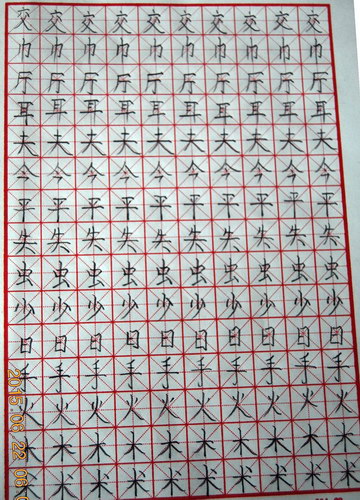 交交交交交交交交交交
巾巾巾巾巾巾巾巾巾巾
斤斤斤斤斤斤斤斤斤斤
耳耳耳耳耳耳耳耳耳耳
夫夫夫夫夫夫夫夫夫夫
今今今今今今今今今今
平平平平平平平平平平
失失失失失失失失失失
虫虫虫虫虫虫虫虫虫虫
少少少少少少少少少少
日日日日日日日日日日
手手手手手手手手手手
火火火火火火火火火火
木木木木木木木木木木
术术术术术术术术术术
2015.06.22 06:0